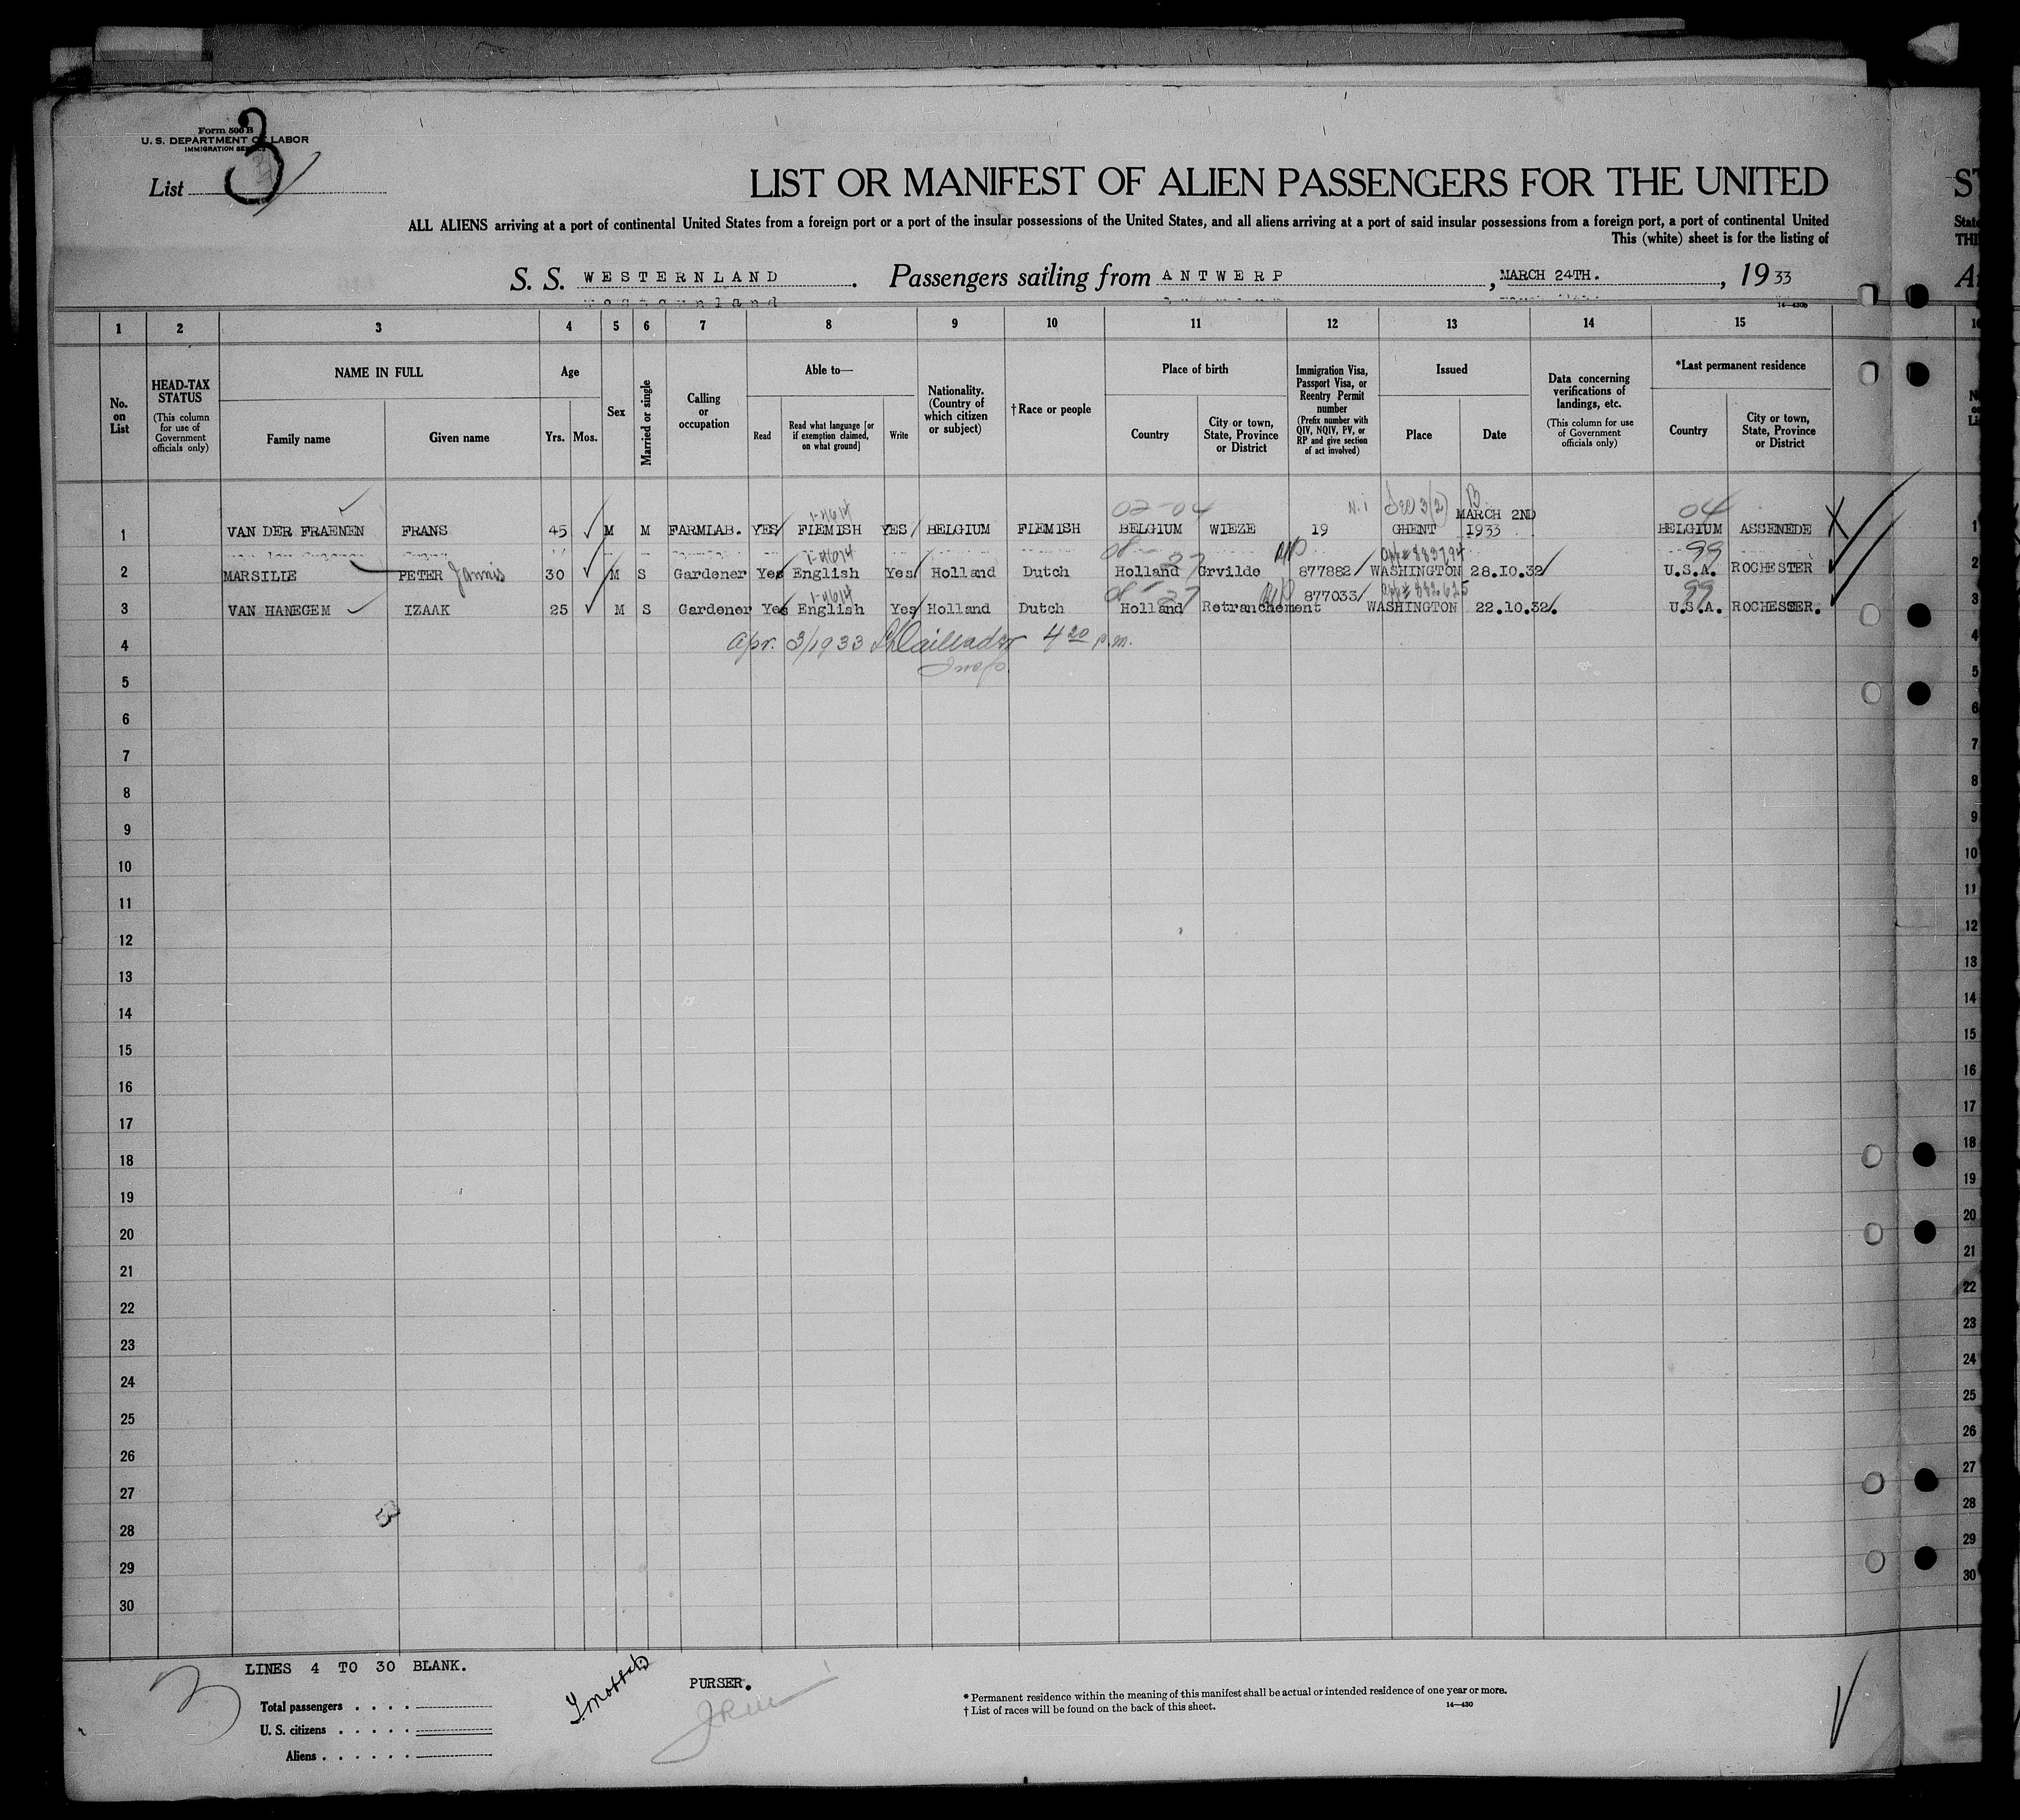 Form 500 B
U. S. DEPARTMENT OF LABOR
IMMIGRATION SERVICE
List 3
LIST OR MANIFEST OF ALIEN PASSENGERS FOR THE UNITED
ALL ALIENS arriving at a port of continental United States from a foreign port or a port of the insular possessions of the United States, and all aliens arriving at a port of said insular possessions from a foreign port, a port of continental United
This (white) sheet is for the listing of
S. S. WESTERNLAND. Passengers sailing from ANTWERP, MARCH 24TH., 1933
14—430b
1 2 3 4 5 6 7 8 9 10 11 12 13 14 15
No. on List
HEAD-TAX STATUS (This column for use of Government officials only)
NAME IN FULL Family name Given name
Age Yrs. Mos.
Sex
Married or single
Calling or occupation
Able to— Read Read what language [or if exemption claimed, on what ground] Write
Nationality. (Country of which citizen or subject)
† Race or people
Place of birth Country City or town, State, Province or District
Immigration Visa, Passport Visa, or Reentry Permit number (Prefix number with QIV, NQIV, PV, or RP and give section of act involved)
Issued Place Date
Data concerning verifications of landings, etc. (This column for use of Government officials only)
*Last permanent residence Country City or town, State, Province or District
02-04 Sec 3(2) B 04
1 VAN DER FRAENEN FRANS 45 M M FARMLAB. YES FLEMISH YES BELGIUM FLEMISH BELGIUM WIEZE 19 GHENT MARCH 2ND 1933 BELGIUM ASSENEDE 1
08-27 99
2 MARSILLE PETER Jannis 30 M S Gardener Yes English Yes Holland Dutch Holland Grvilde 877882 WASHINGTON 28.10.32 U.S.A. ROCHESTER 2
08-27 99
3 VAN HANEGEM IZAAK 25 M S Gardener Yes English Yes Holland Dutch Holland Retranchement 877033 WASHINGTON 22.10.32. U.S.A. ROCHESTER. 3
4 Apr. 3/1933 4 20 p.m. 4
5 5
6 6
7 7
8 8
9 9
10 10
11 11
12 12
13 13
14 14
15 15
16 16
17 17
18 18
19 19
20 20
21 21
22 22
23 23
24 24
25 25
26 26
27 27
28 28
29 29
30 30
LINES 4 TO 30 BLANK.
3
Total passengers . . . .
U. S. citizens . . . . .
Aliens . . . . . .
PURSER.
* Permanent residence within the meaning of this manifest shall be actual or intended residence of one year or more.
† List of races will be found on the back of this sheet.
14—430